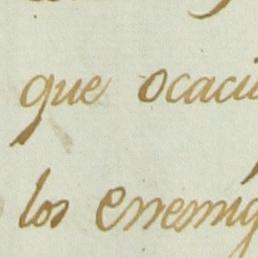 que ocaci
los enemig